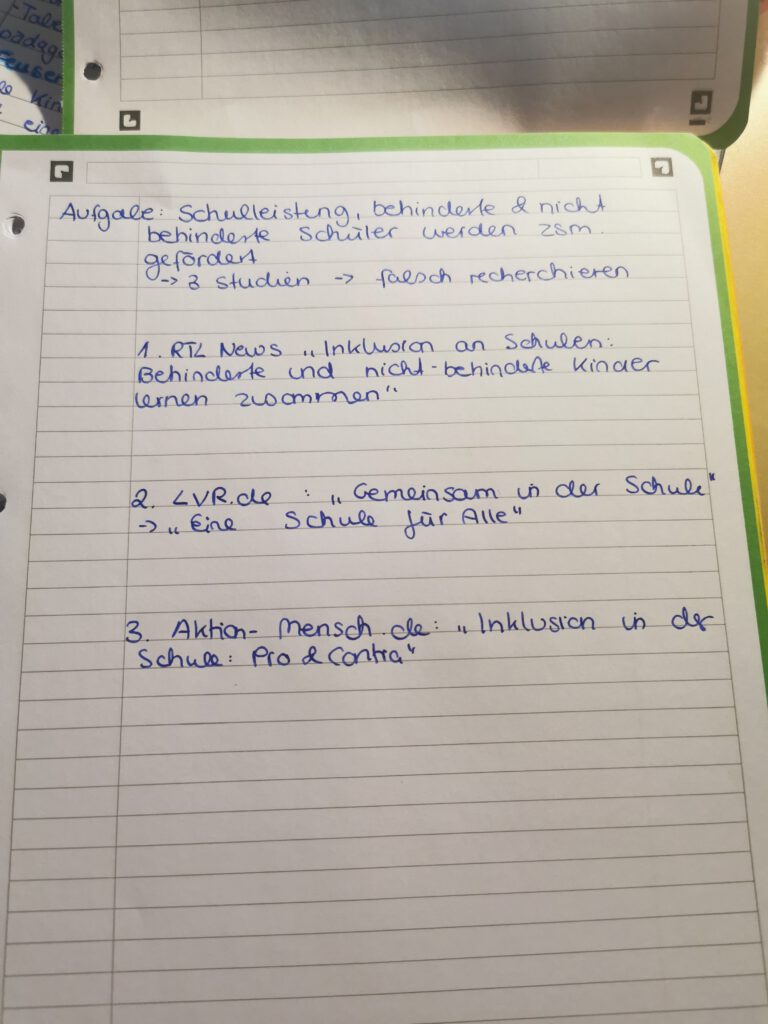 -Tale
pädag
Feuser
le Kin
eine
Aufgabe: Schulleistung, behinderte & nicht
behinderte Schüler werden zsm.
gefördert
-> 3 Studien -> falsch recherchieren
1. RTL News „Inklusion an Schulen:
Behinderte und nicht-behinderte Kinder
lernen zusammen"
2. LVR.de : „Gemeinsam in der Schule"
-> „Eine Schule für Alle"
3. Aktion-Mensch.de: „Inklusion in der
Schule: Pro & Contra"